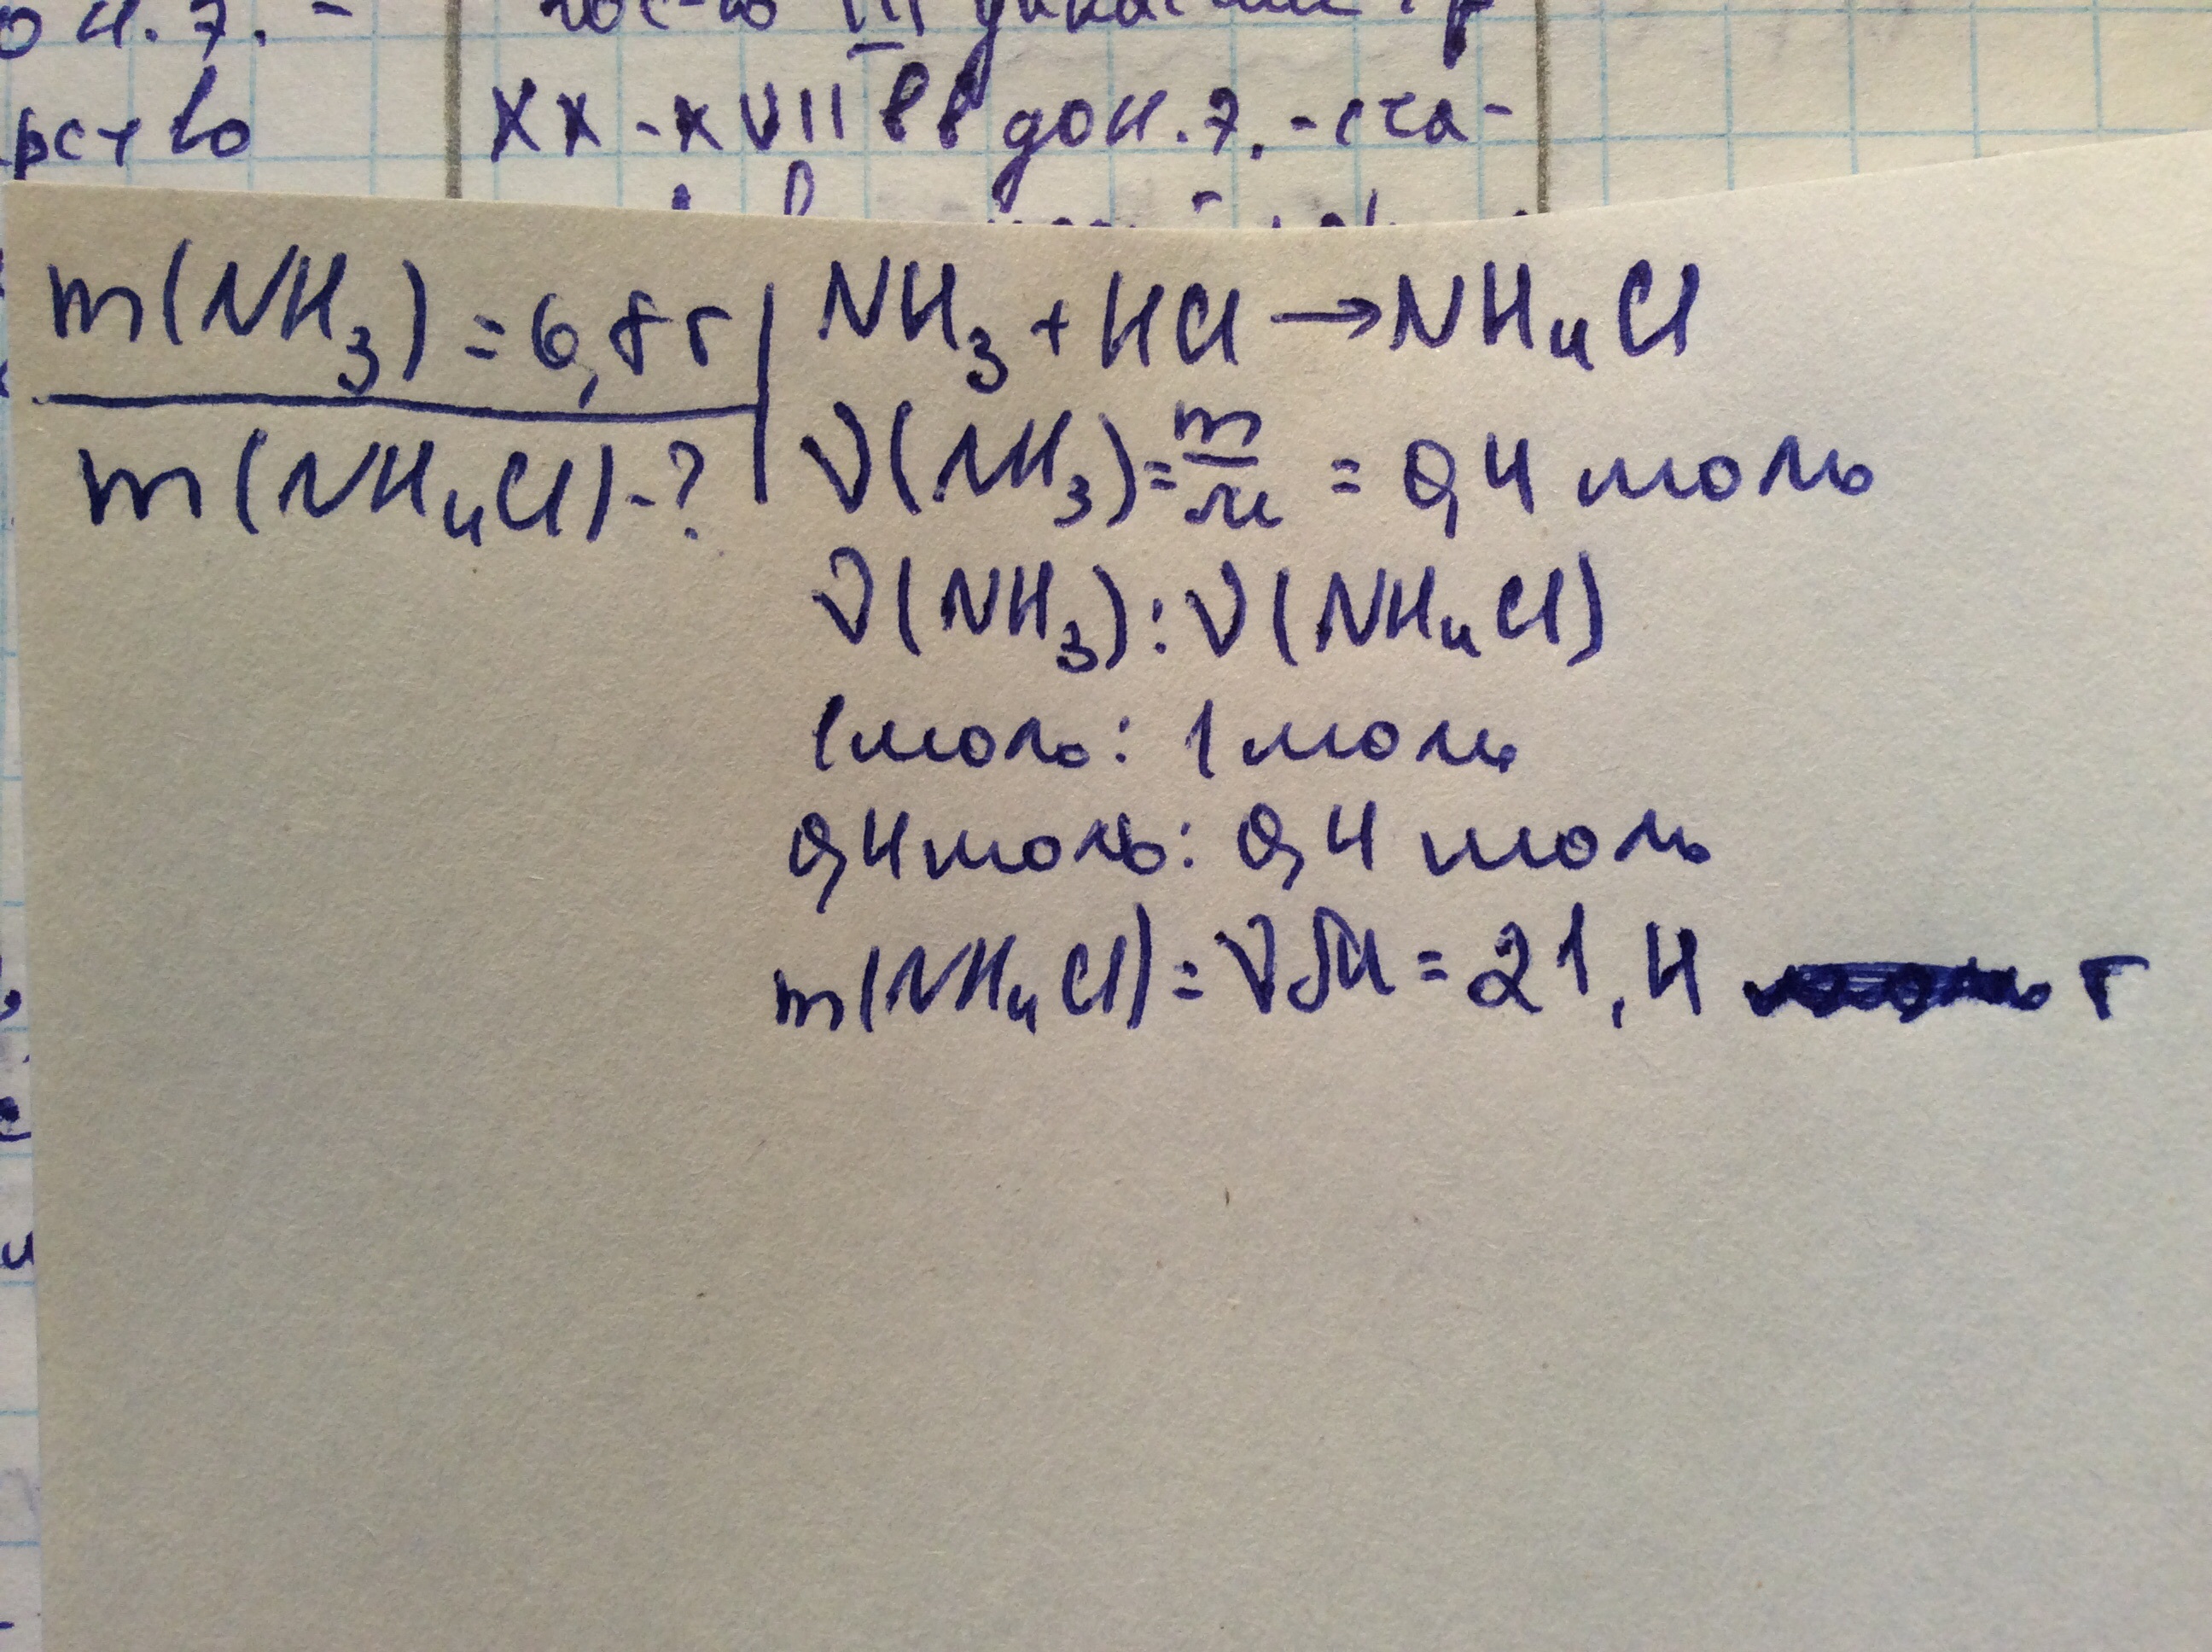 о н.э. -
XX-XVII вв до н.э. -ста-
m(NH₃) = 6,8г
m(NH₄Cl)-?
NH₃ + HCl → NH₄Cl
ν(NH₃) = m/M = 0,4 моль
ν(NH₃) : ν(NH₄Cl)
1 моль : 1 моль
0,4 моль : 0,4 моль
m(NH₄Cl) = νM = 21,4 г